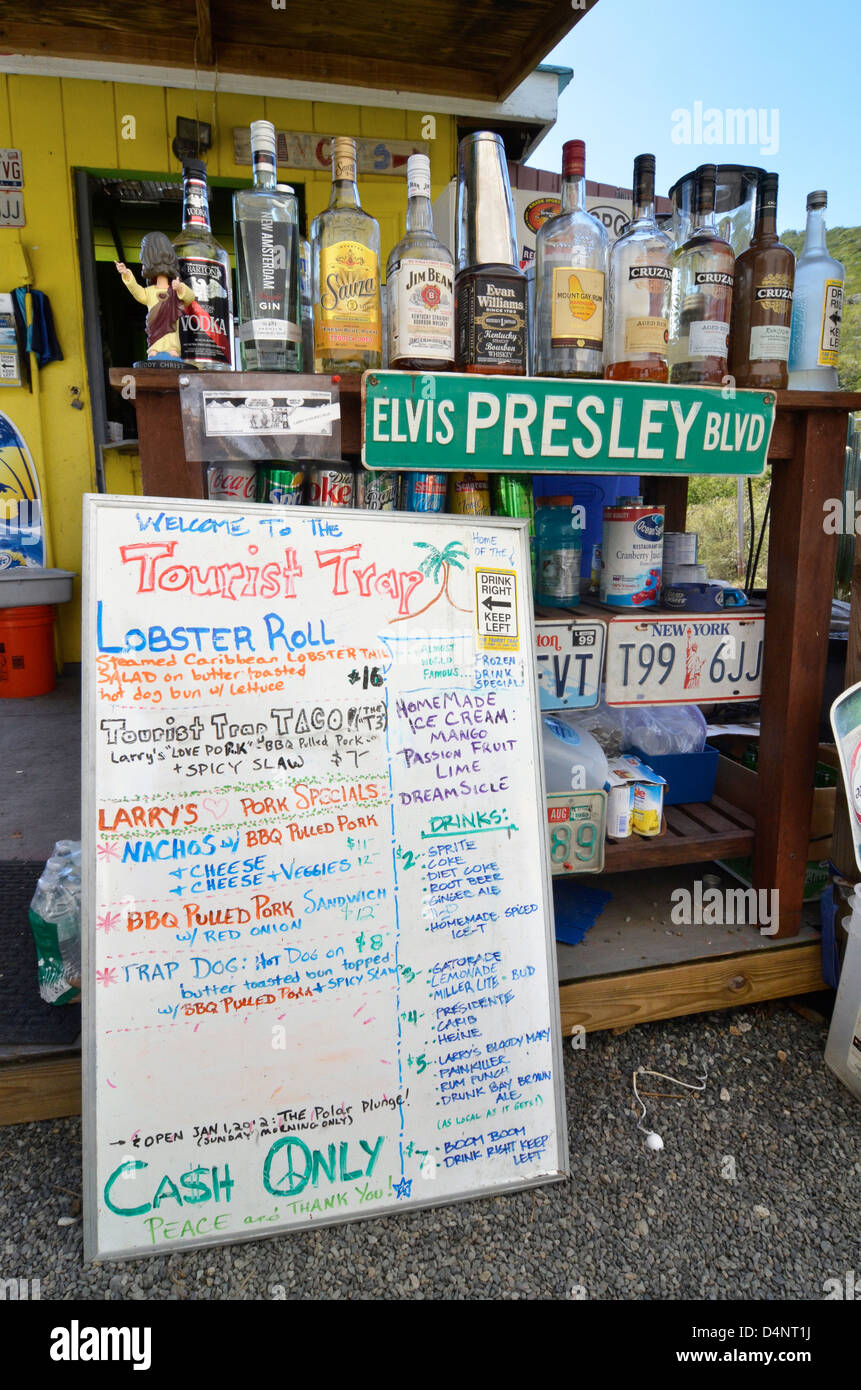 VG
6JJ
VODKA
BARTON
VODKA
NEW AMSTERDAM
GIN
Sauza
JIM BEAM
JIM BEAM
KENTUCKY STRAIGHT BOURBON WHISKEY
Evan Williams
SINCE 1783
Kentucky Straight BOURBON WHISKEY
MOUNT GAY RUM
CRUZAN
AGED RUM
CRUZAN
CRUZAN
DRINK RIGHT
KEEP LEFT
BUDDY CHRIST
ELVIS PRESLEY BLVD
Coca-Cola
Sprite
Coke
Diet
Seagram's
Ocean Spray
Cranberry Juice
WELCOME TO THE
Tourist Trap
HOME OF THE
DRINK RIGHT
KEEP LEFT
FROZEN DRINK SPECIAL
ALMOST WORLD FAMOUS..
LOBSTER ROLL
Steamed Caribbean LOBSTER TAIL
SALAD on butter toasted
hot dog bun w/ lettuce
$16
Tourist Trap TACO! (THE "T3")
Larry's "LOVE PORK" BBQ Pulled Pork
+ SPICY SLAW $7
LARRY'S ♡ PORK SPECIALS:
* NACHOS w/ BBQ PULLED PORK $11
+ CHEESE
+ CHEESE + VEGGIES 12
* BBQ PULLED PORK SANDWICH
w/ RED ONION $12
* TRAP DOG: HOT DOG on $8
butter toasted bun topped
w/ BBQ PULLED PORK + SPICY SLAW
→ OPEN JAN 1, 2012: THE Polar Plunge!
(SUNDAY MORNING ONLY)
CA$H ONLY
PEACE and THANK YOU!
HOMEMADE
ICE CREAM:
MANGO
PASSION FRUIT
LIME
DREAMSICLE
DRINKS:
$2 - SPRITE
- COKE
- DIET COKE
- ROOT BEER
- GINGER ALE
- H2O
- HOMEMADE SPICED
ICE-T
$3 - GATORADE
- LEMONADE
- MILLER LITE - BUD
$4 - PRESIDENTE
- CARIB
- HEINE
$5 - LARRY'S BLOODY MARY
- PAINKILLER
- RUM PUNCH
- DRUNK BAY BROWN
ALE
(AS LOCAL AS IT GETS!)
$7 - BOOM BOOM
- DRINK RIGHT KEEP
LEFT
99
FVT
NEW YORK
T99 6JJ
AUG
89
alamy
Image ID: D4NT1J
www.alamy.com